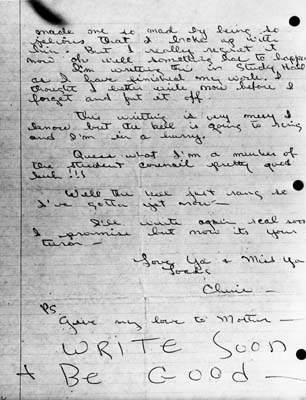 made me so mad by being so
jealous that I broke up with
him. But I really regret it
now oh well something has to happen
I'm writing this in Study Hall
as I have finished my work. I
thought I better write now before I
forget and put it off.
This writing is very messy I
know but the bell is going to ring
and I'm in a hurry.
Guess what I'm a member of
the student council pretty good
huh!!!
Well the bell just rang so
I've gotta jet now—
I'll write again real soon
I promise but now its your
turn—
Love Ya & Miss Ya
Loads
PS
Give my love to Mother—
WRITE SOON
+ BE GOOD—